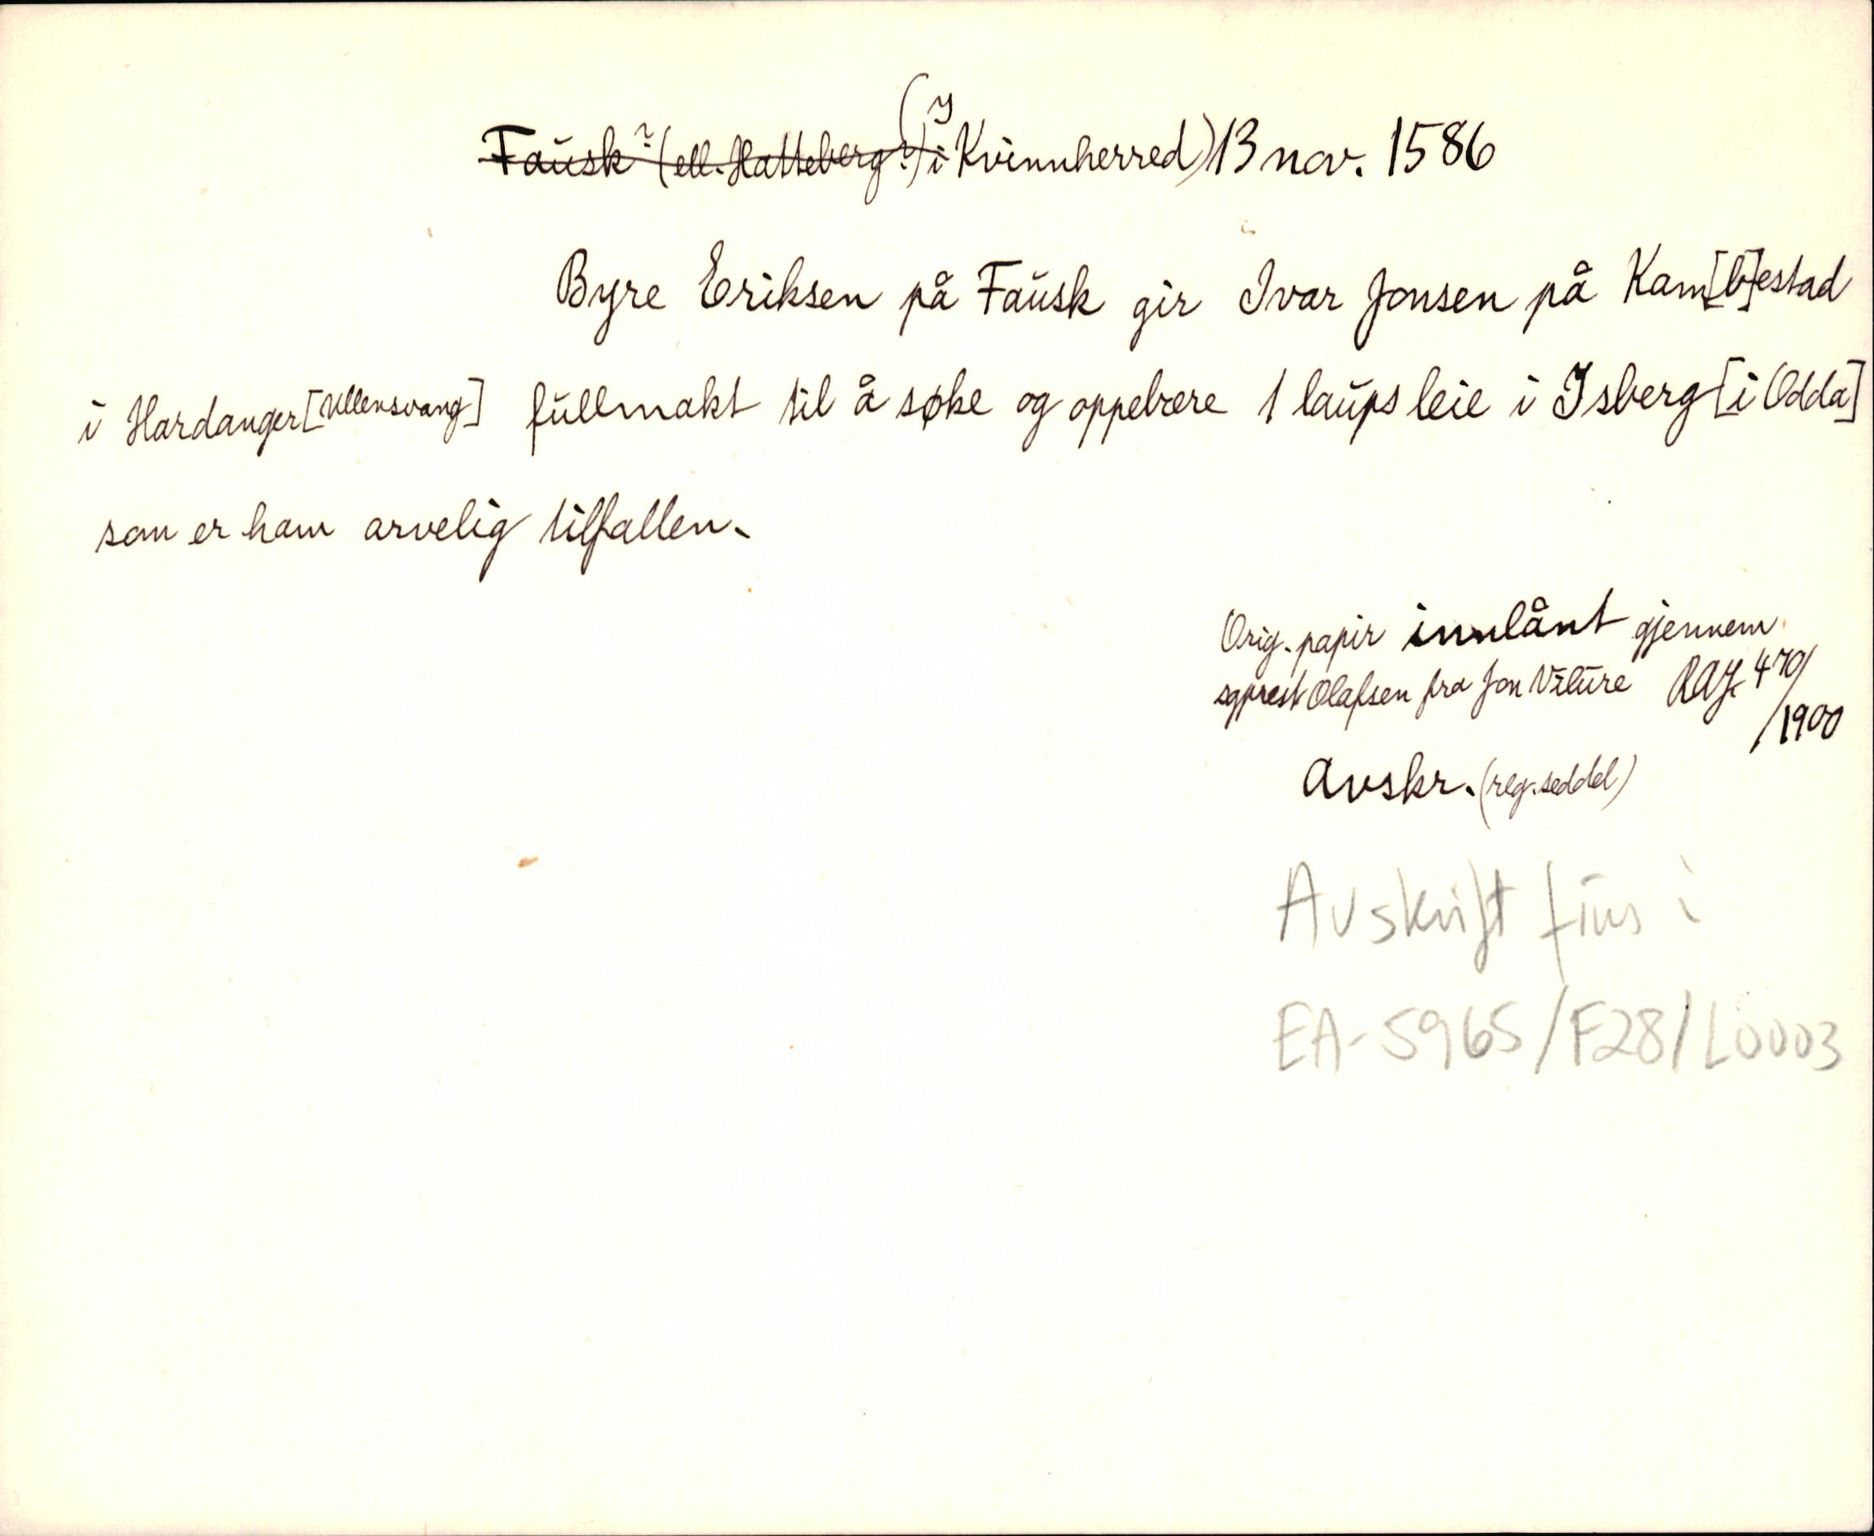 Fausk? (ell. Hatteberg?) i (I Kvinnherred) 13 nov. 1586
Byre Eriksen på Fausk gir Ivar Jonsen på Kam[b]estad
i Hardanger [Ullensvang] fullmakt til å søke og oppebære 1 laups leie i Isberg [i Odda]
som er ham arvelig tilfallen.
Orig. papir innlånt gjennem
sgprest Olafsen fra Jon Vilure RAJ. 470/
/1900
Avskr. (reg. seddel)
Avskrift fins i
EA-5965/F28/L0003